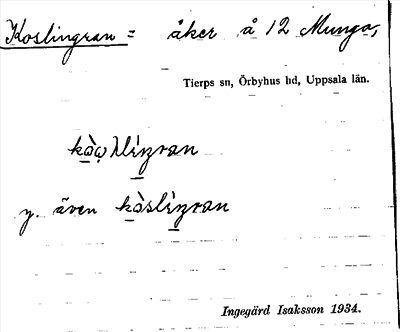 Koslingran = åker å 12 Munga,
Tierps sn, Örbyhus hd, Uppsala län.
y. även kòslìŋran
Ingegärd Isaksson 1934.